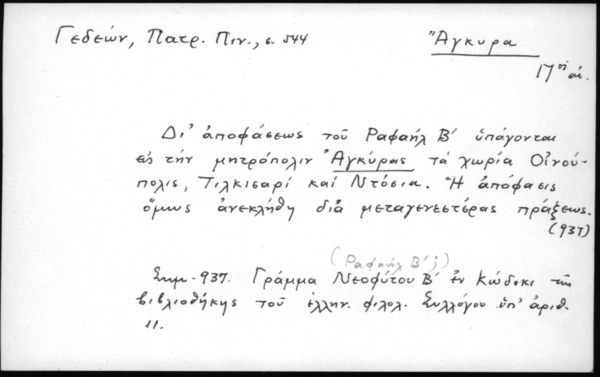 Γεδεών, Πατρ. Πιν., σ. 544
Ἄγκυρα
17ος αἰ.
Δι' ἀποφάσεως τοῦ Ραφαήλ Β´ ὑπάγονται
εἰς τήν μητρόπολιν Ἀγκύρας τά χωρία Οἰνού-
πολις, Τιλκισαρί καί Ντόσια. Ἡ ἀπόφασις
ὅμως ἀνεκλήθη διά μεταγενεστέρας πράξεως.
(937)
(Ραφαήλ Β´;)
Σημ. 937. Γράμμα Νεοφύτου Β´ ἐν Κώδικι τῆς
βιβλιοθήκης τοῦ ἑλλην. φιλολ. Συλλόγου ὑπ' ἀριθ.
11.